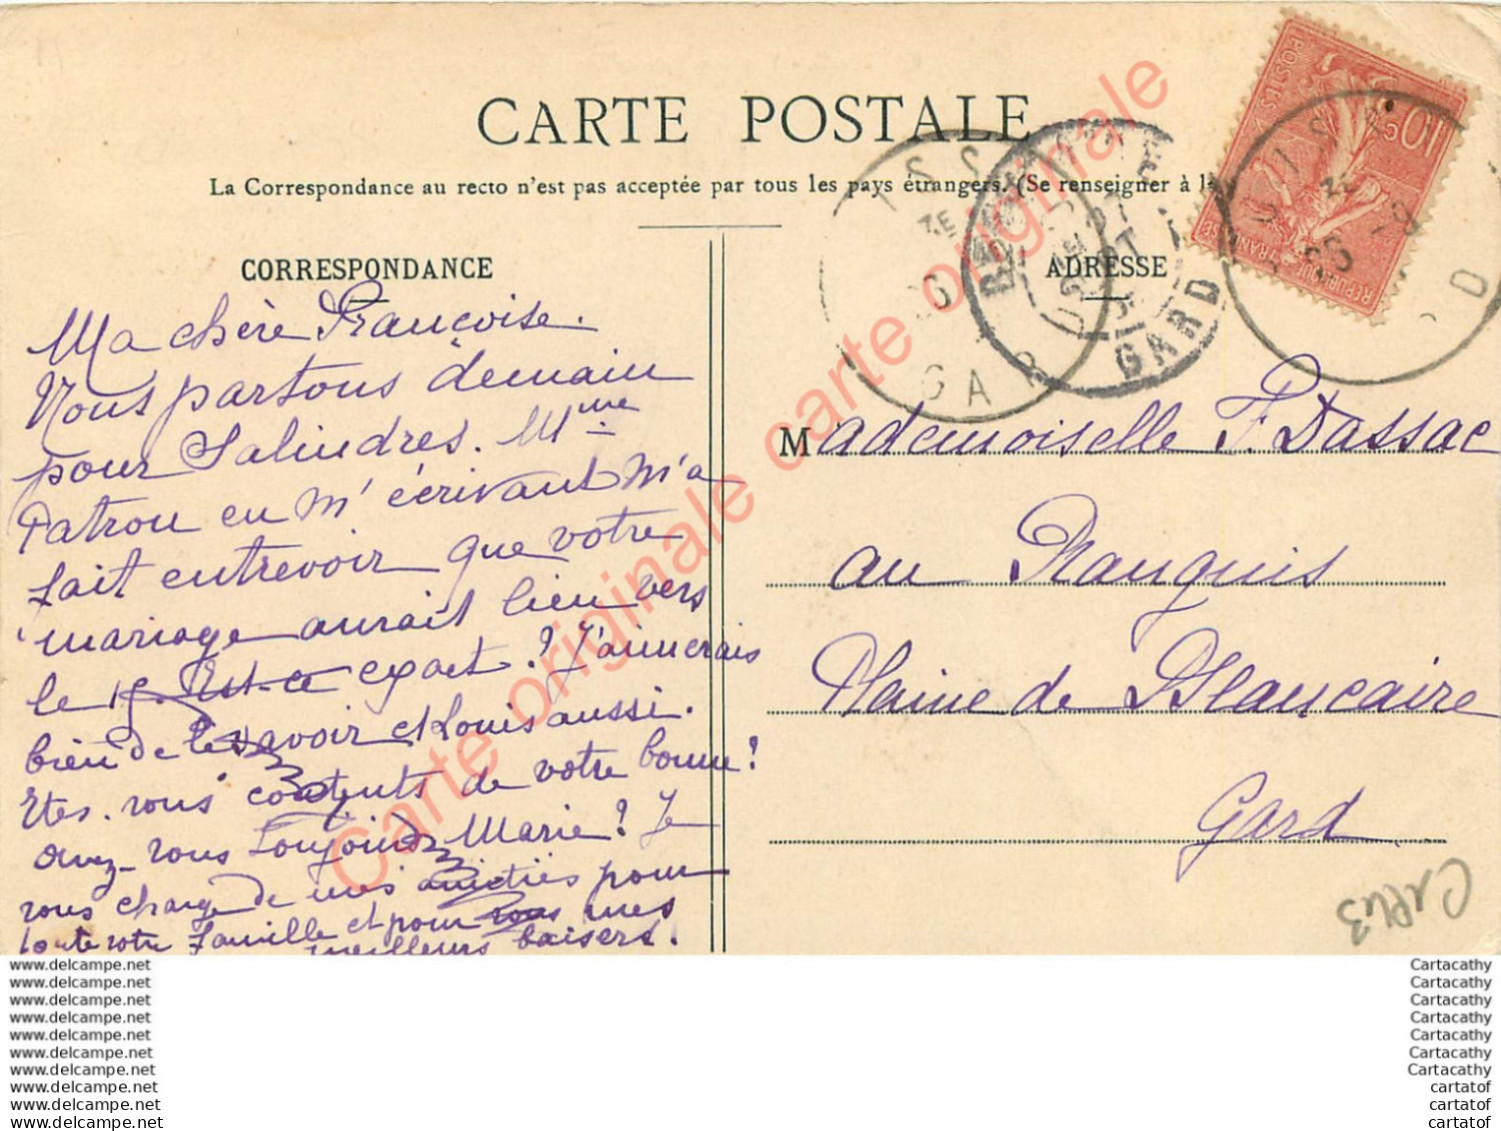 CARTE POSTALE
La Correspondance au recto n'est pas acceptée par tous les pays étrangers. (Se renseigner à la
CORRESPONDANCE
Ma chère Françoise.
Nous partons demain
pour Salindres. Mme
Patrou en m'écrivant m'a
fait entrevoir que votre
mariage aurait lieu vers
le 15. Est-ce exact? J'aimerais
bien de le savoir et Louis aussi.
Etes-vous contents de votre bonne?
avez-vous toujours Marie? Je
vous charge de mes amitiés pour
toute votre famille et pour vous mes
meilleurs baisers.
ADRESSE
Mademoiselle F. Dassac
au Ranquis
Plaine de Beaucaire
Gard
10c
POSTES
REPUBLIQUE FRANÇAISE
GARD
GARD
Carte originale carte originale
www.delcampe.net
www.delcampe.net
www.delcampe.net
www.delcampe.net
www.delcampe.net
www.delcampe.net
www.delcampe.net
www.delcampe.net
www.delcampe.net
www.delcampe.net
Cartacathy
Cartacathy
Cartacathy
Cartacathy
Cartacathy
Cartacathy
Cartacathy
cartatof
cartatof
cartatof